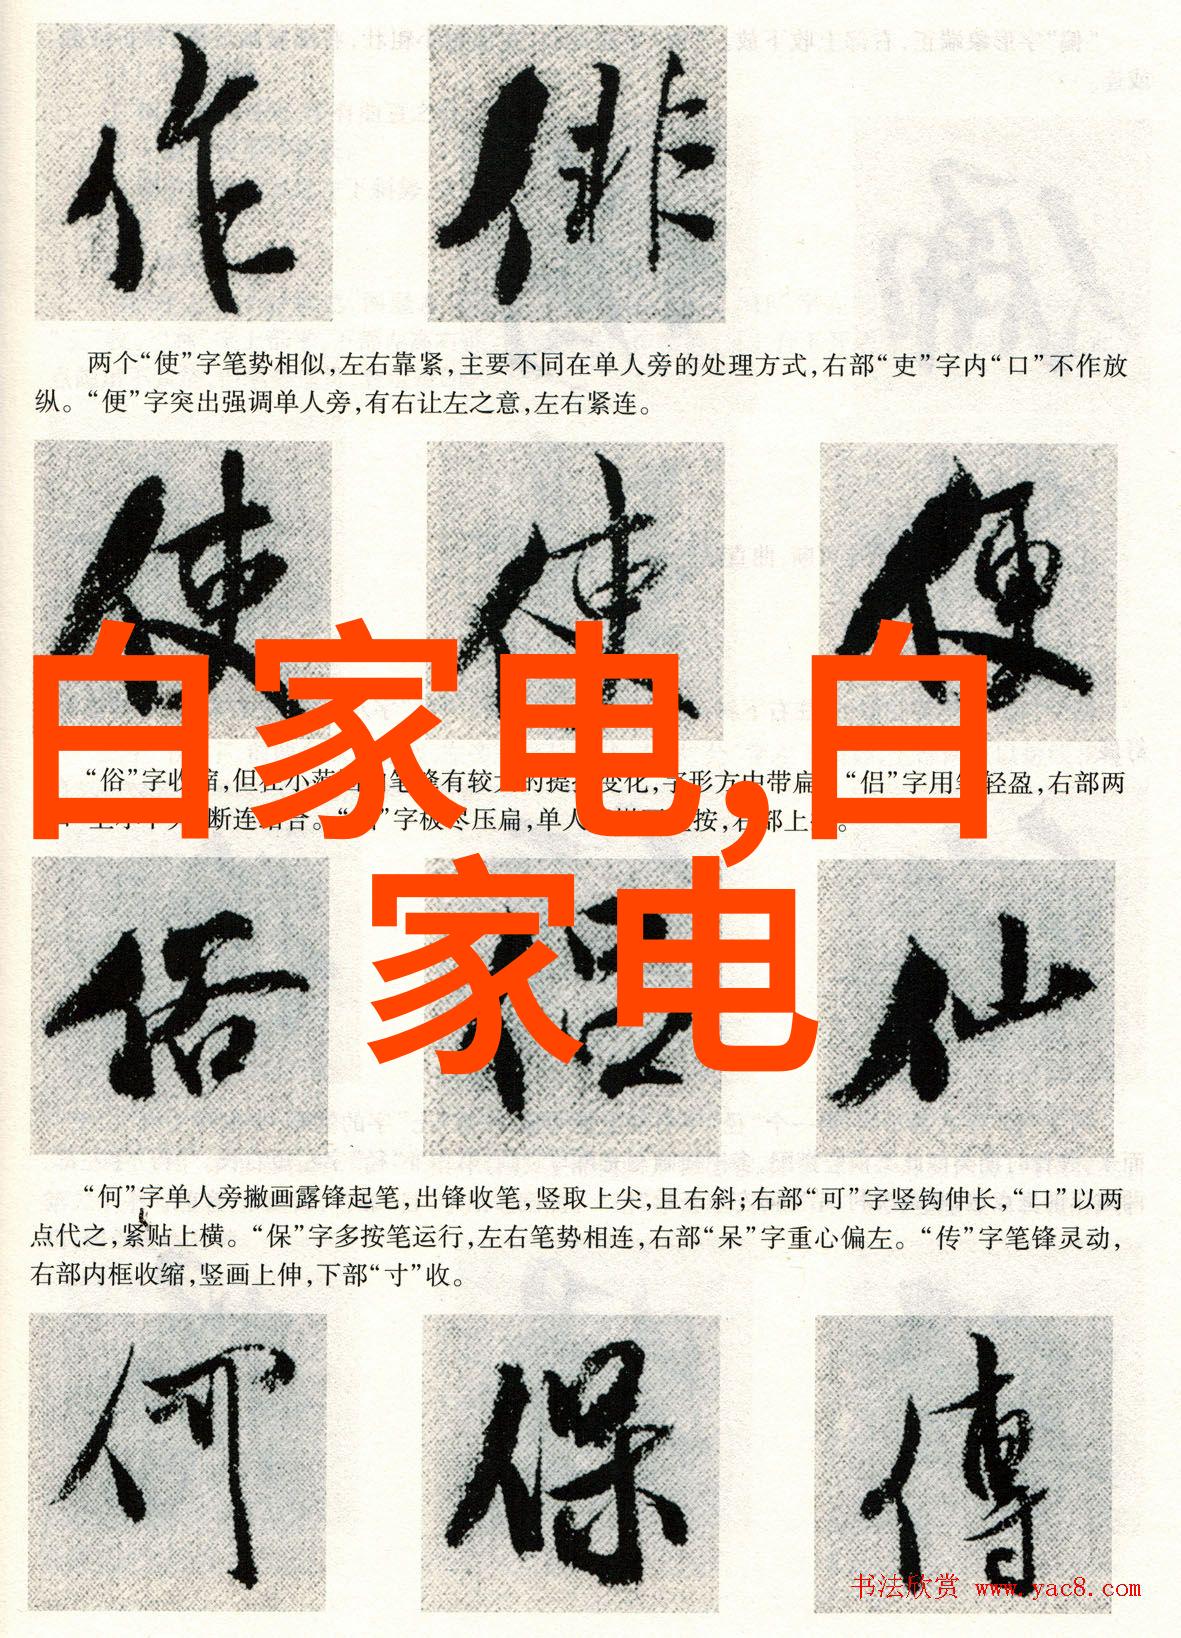 作 俳
两个“使”字笔势相似,左右靠紧,主要不同在单人旁的处理方式,右部“吏”字内“口”不作放
纵。“便”字突出强调单人旁,有右让左之意,左右紧连。
使 使 便
白家电,白
家电
“俗”字收缩,但在小范 笔锋有较大的提 变化,字形方中带扁 “侣”字用笔轻盈,右部两
断连结合。 字极尽压扁,单人 按,右部上
俗 侣 仙
“何”字单人旁撇画露锋起笔,出锋收笔,竖取上尖,且右斜;右部“可”字竖钩伸长,“口”以两
点代之,紧贴上横。“保”字多按笔运行,左右笔势相连,右部“呆”字重心偏左。“传”字笔锋灵动,
右部内框收缩,竖画上伸,下部“寸”收。
何 保 傳
书法欣赏 www.yac8.com